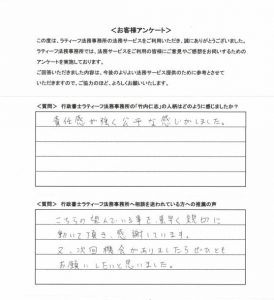 ＜お客様アンケート＞
この度は、ラティーフ法務事務所の法務サービスをご利用いただき、誠にありがとうございました。
ラティーフ法務事務所では、法務サービスをご利用の皆様にご意見やご感想をお伺いするための
アンケートを実施しております。
ご回答いただきました内容は、今後のよりよい法務サービス提供のために参考とさせて
いただきますので、ご協力のほど、よろしくお願いいたします。
＜質問＞ 行政書士ラティーフ法務事務所の「竹内仁志」の人柄はどのように感じましたか？
責任感が強く公平な感じがしました。
＜質問＞ 行政書士ラティーフ法務事務所へ相談を迷われている方への推薦の声
こちらの望んでいる事を見早く親切に
動いて頂き、感謝しています。
又、次回機会がありましたらぜひとも
お願いしたいと思いました。